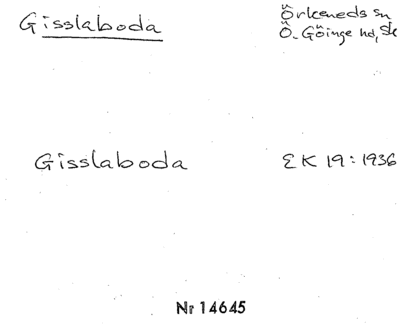 Gisslaboda Örkeneds sn
Ö. Göinge hd, Sk
Gisslaboda EK 19:1936
Nr 14645